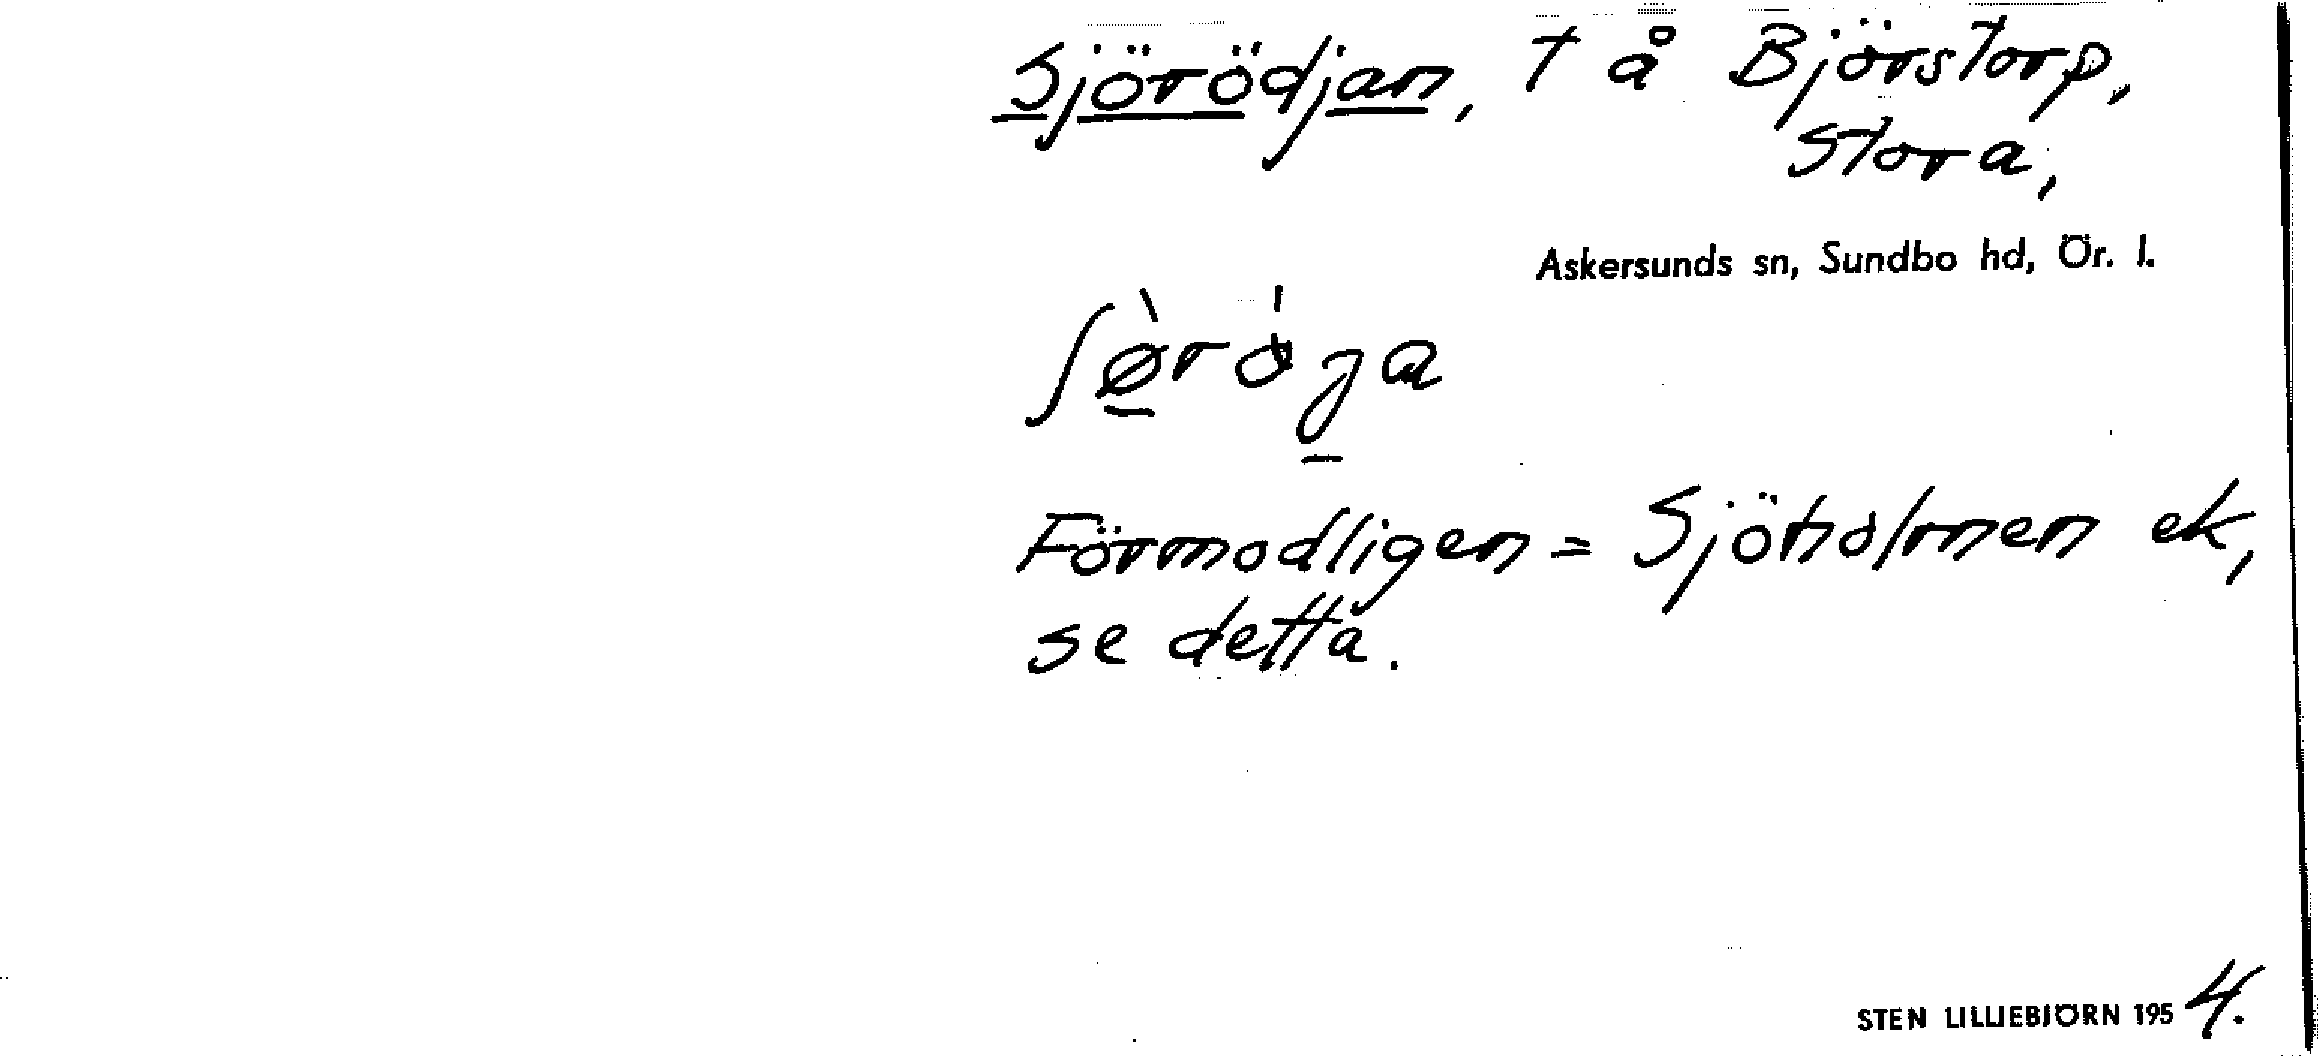 Sjörödjan, t å Björstorp,
Stora,
Askersunds sn, Sundbo hd, Ör. l.
Förmodligen = Sjöholmen ek,
se detta.
STEN LILLIEBJÖRN 1954.